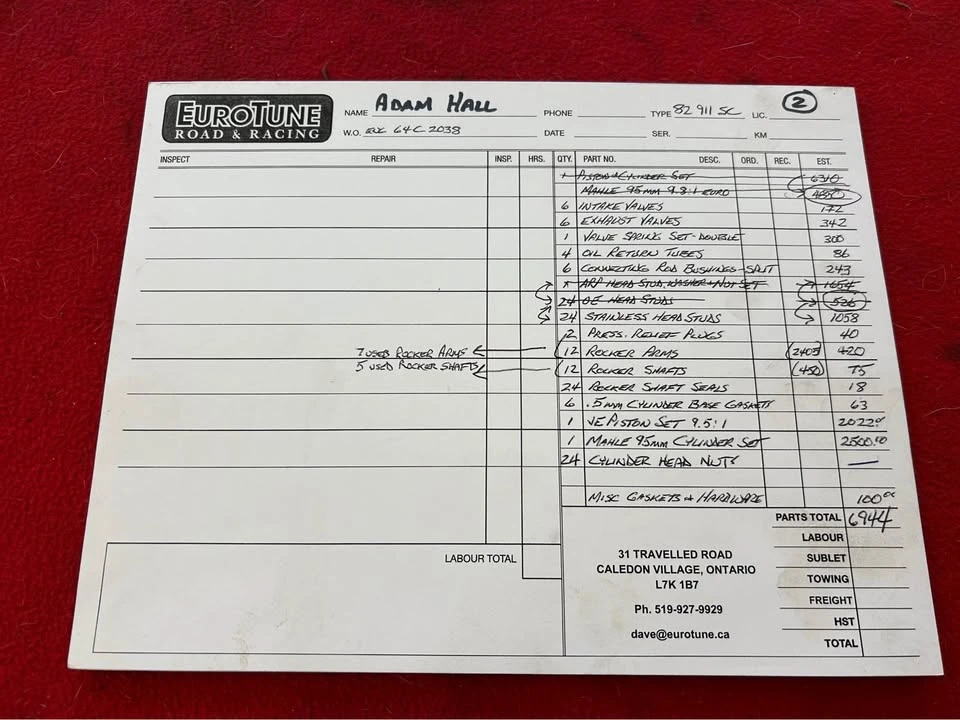 EUROTUNE
ROAD & RACING
NAME ADAM HALL PHONE TYPE 82 911 SC LIC. 2
W.O. 64C2038 DATE SER. KM
INSPECT REPAIR INSP. HRS. QTY. PART NO. DESC. ORD. REC. EST.
1 PISTON & CYLINDER SET 6310
MAHLE 95MM 9.3:1 EURO
6 INTAKE VALVES 172
6 EXHAUST VALVES 342
1 VALVE SPRING SET-DOUBLE 300
4 OIL RETURN TUBES 86
6 CONNECTING ROD BUSHINGS-SPLIT 243
ARP HEAD STUD, WASHER & NUT SET 1654
24 OE HEAD STUDS 526
24 STAINLESS HEAD STUDS 1058
2 PRESS. RELIEF PLUGS 40
7 USED ROCKER ARMS (12 ROCKER ARMS (2405) 420
5 USED ROCKER SHAFTS (12 ROCKER SHAFTS (450) 75
24 ROCKER SHAFT SEALS 18
6 .5MM CYLINDER BASE GASKETS 63
1 JE PISTON SET 9.5:1 2022
1 MAHLE 95MM CYLINDER SET 2500.00
24 CYLINDER HEAD NUTS —
MISC GASKETS & HARDWARE 100 00
PARTS TOTAL 6944
LABOUR
LABOUR TOTAL
SUBLET
TOWING
FREIGHT
HST
TOTAL
31 TRAVELLED ROAD
CALEDON VILLAGE, ONTARIO
L7K 1B7
Ph. 519-927-9929
dave@eurotune.ca